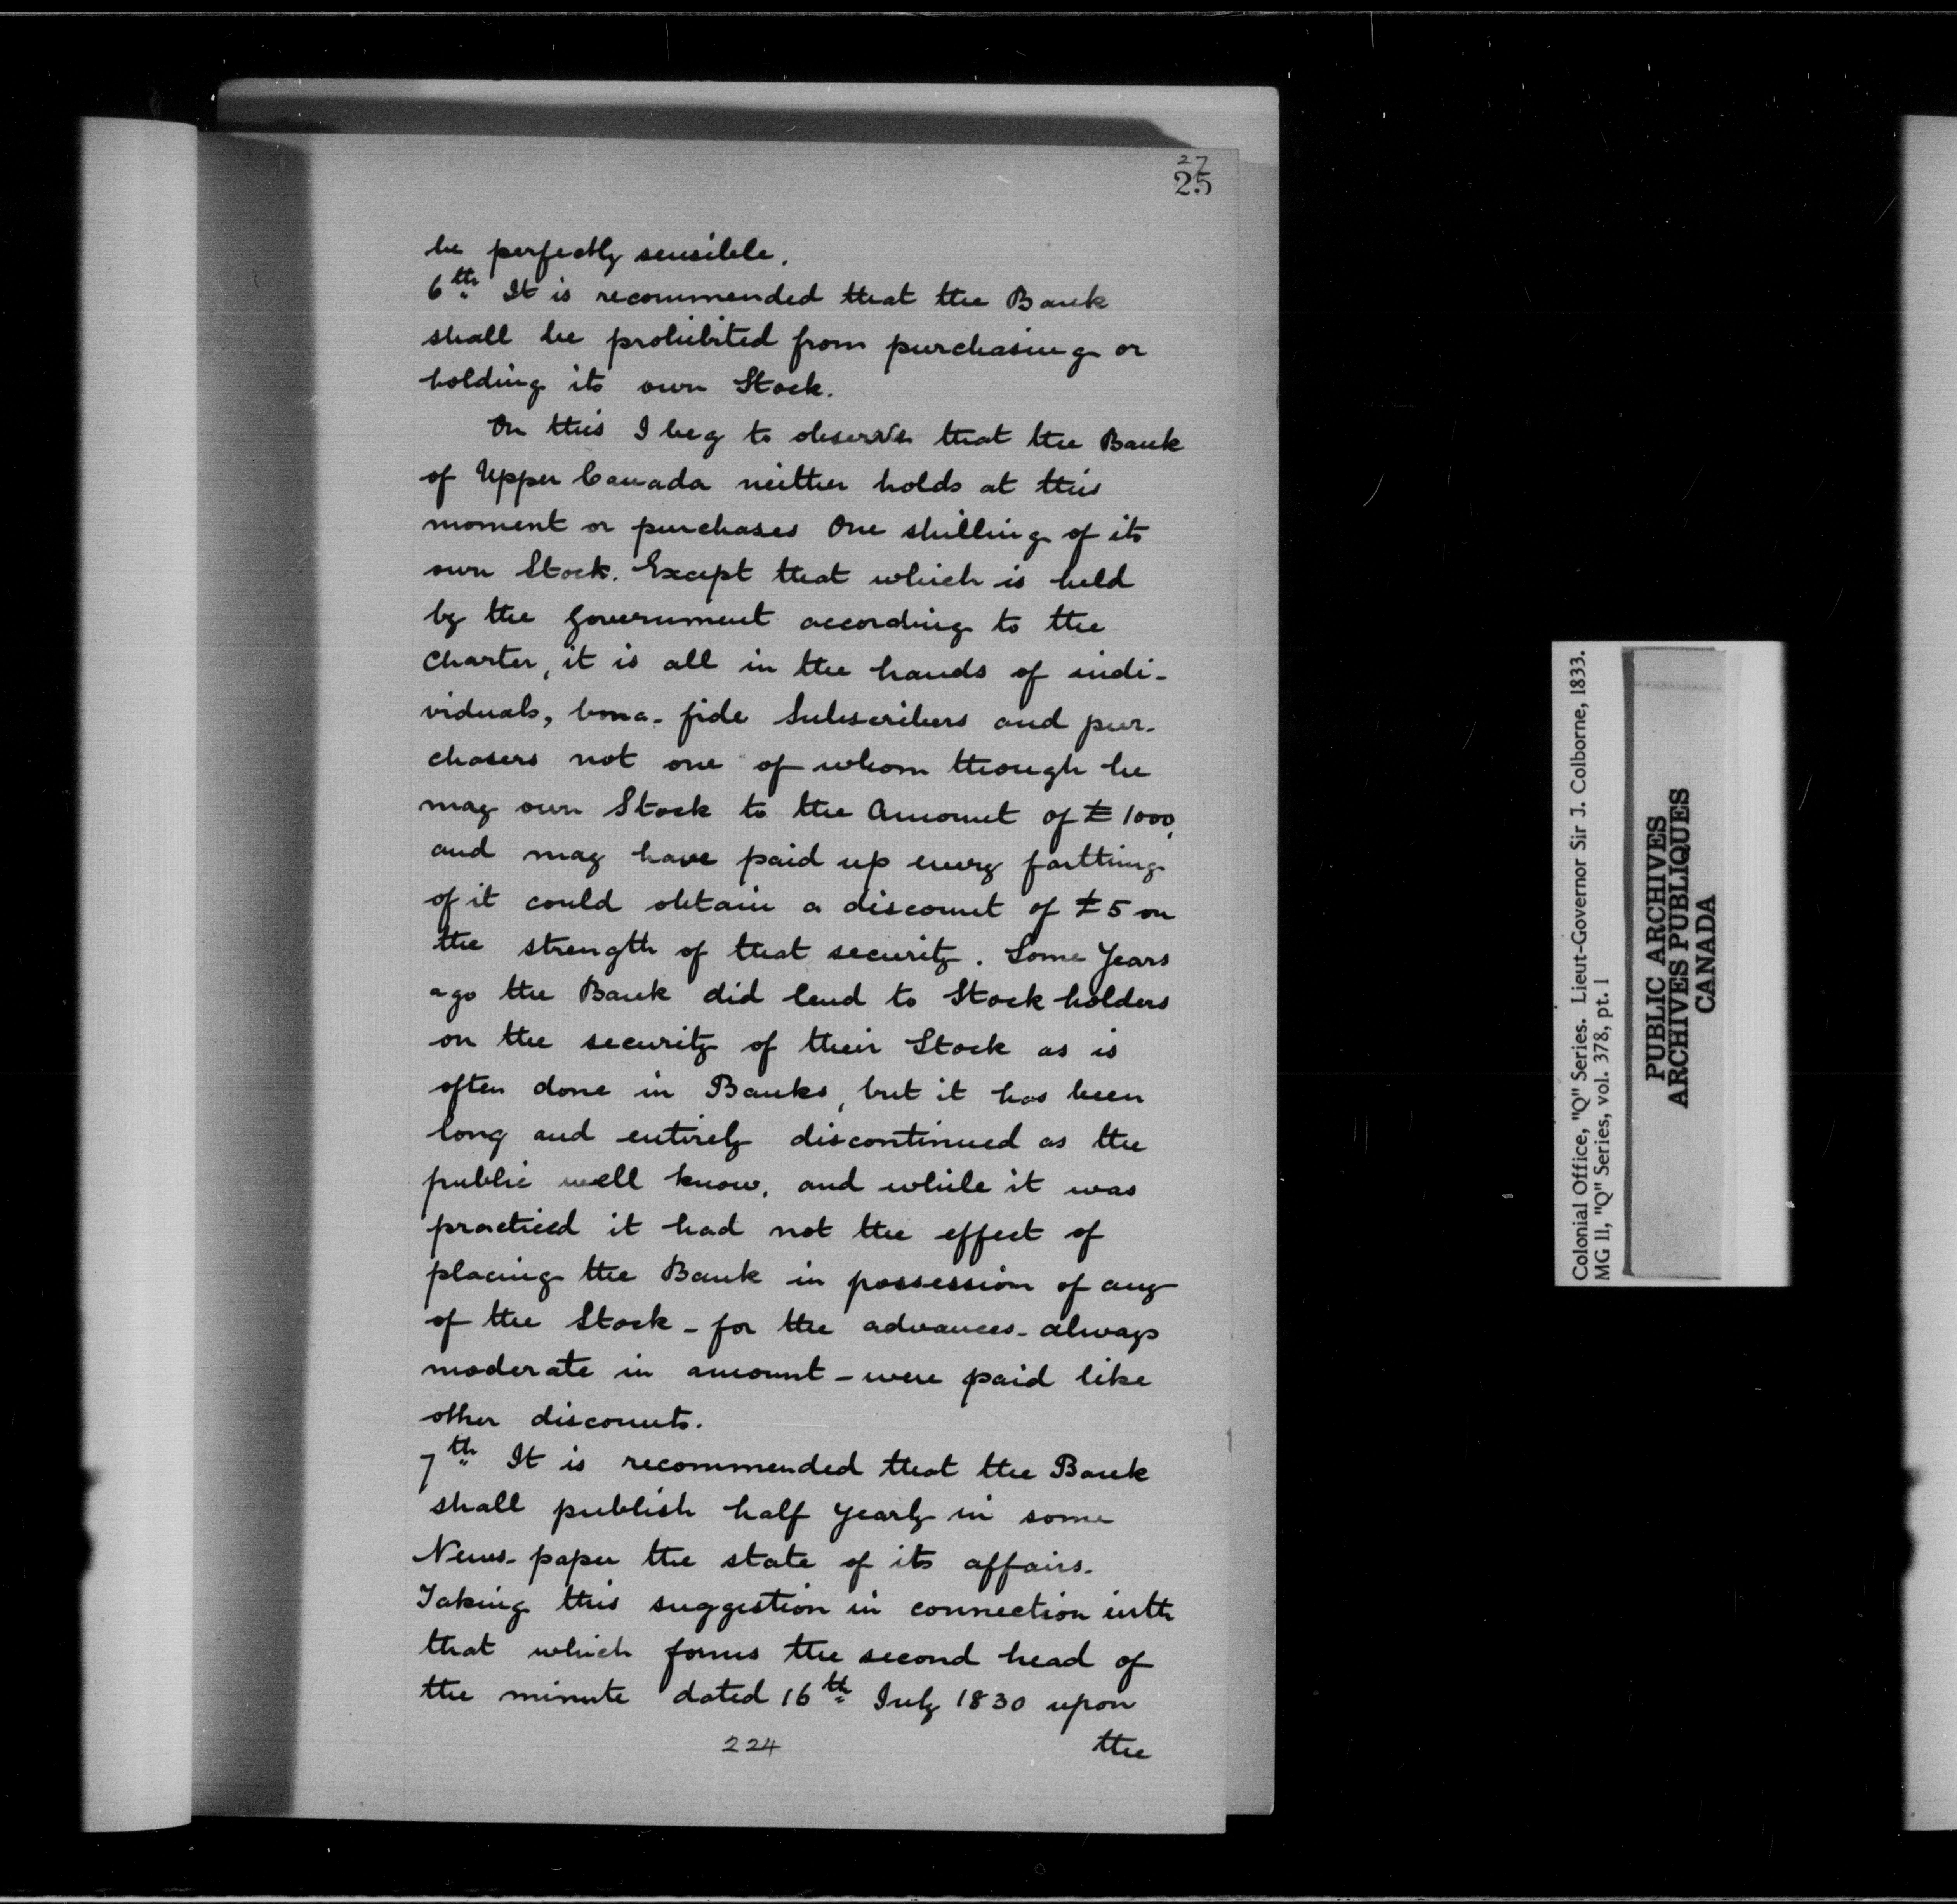 27
25
be perfectly sensible.
6th It is recommended that the Bank
shall be prohibited from purchasing or
holding its own Stock.
On this I beg to observe that the Bank
of Upper Canada neither holds at this
moment or purchases One shilling of its
own Stock. Except that which is held
by the Government according to the
Charter, it is all in the hands of indi-
viduals, bona-fide Subscribers and pur-
chasers not one of whom though he
may own Stock to the Amount of £1000,
and may have paid up every farthing
of it could obtain a discount of £5 on
the strength of that security. Some Years
ago the Bank did lend to Stock holders
on the security of their Stock as is
often done in Banks, but it has been
long and entirely discontinued as the
public well know, and while it was
practiced it had not the effect of
placing the Bank in possession of any
of the Stock - for the advances - always
moderate in amount - were paid like
other discounts.
7th It is recommended that the Bank
shall publish half yearly in some
News-paper the state of its affairs.
Taking this suggestion in connection with
that which forms the second head of
the minute dated 16th July 1830 upon
224 the
Colonial Office, "Q" Series. Lieut-Governor Sir J. Colborne, 1833.
MG 11, "Q" Series, vol. 378, pt. 1
PUBLIC ARCHIVES
ARCHIVES PUBLIQUES
CANADA